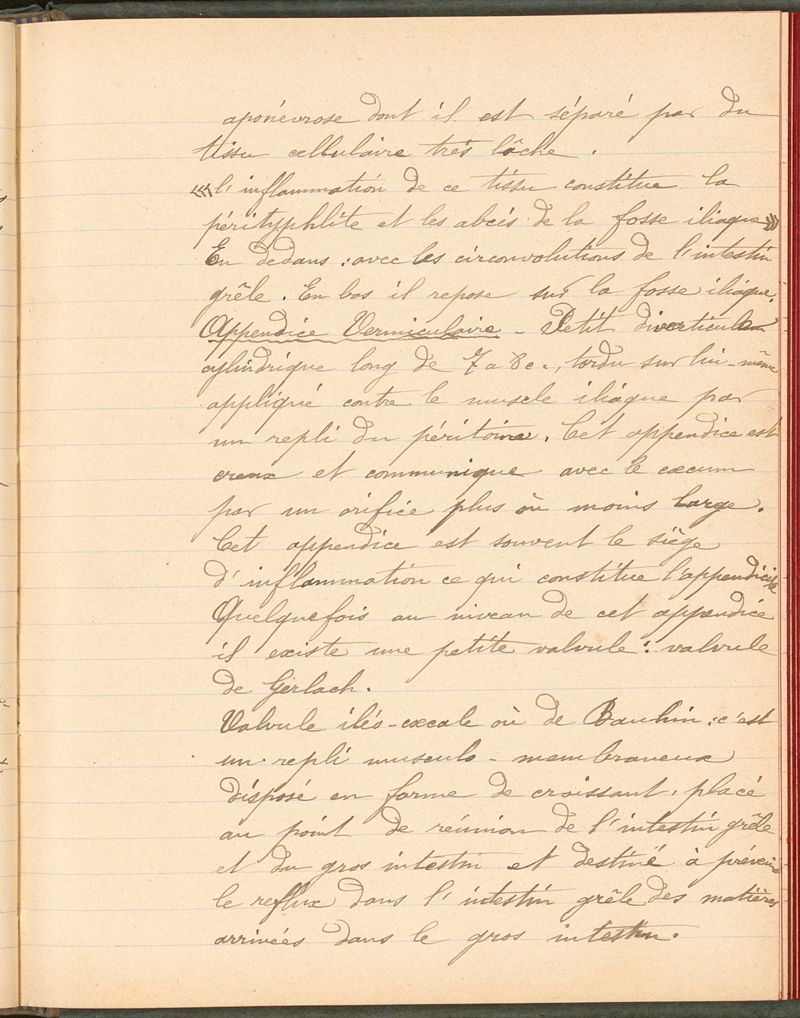 aponévrose dont il est séparé par du
tissu cellulaire très lâche.
«l'inflammation de ce tissu constitue la
pérityphlite et les abcès de la fosse iliaque»
En dedans : avec les circonvolutions de l'intestin
grêle. En bas il repose sur la fosse iliaque.
Appendice Vermiculaire - Petit diverticule
cylindrique long de 7 à 8 c., tordu sur lui-même
appliqué contre le muscle iliaque par
un repli du péritoine. Cet appendice est
creux et communique avec le cæcum
par un orifice plus où moins large.
Cet appendice est souvent le siège
d'inflammation ce qui constitue l'appendicite
Quelquefois au niveau de cet appendice
il existe une petite valvule : valvule
de Gerlach.
Valvule iléo-cæcale où de Bauhin : c'est
un repli musculo-membraneux
disposé en forme de croissant, placé
au point de réunion de l'intestin grêle
et du gros intestin et destiné à prévenir
le reflux dans l'intestin grêle des matières
arrivées dans le gros intestin.